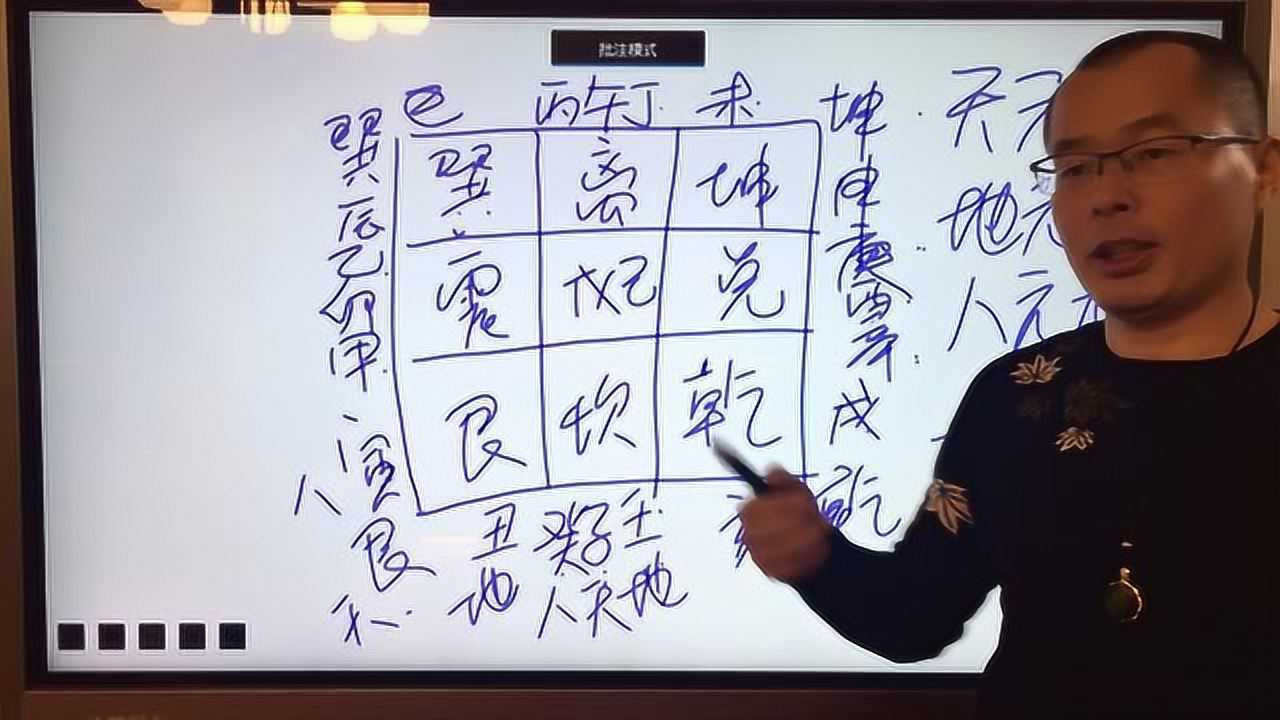 批注模式
巳 丙午丁 未 坤 天元
巽 巽 离 坤 申 地元
辰 乙 卯 甲 震 戊己 兑 庚 酉 辛 人元
寅 艮 坎 乾 戌
人 艮 丑 癸子壬 亥 乾
天 地 人天地